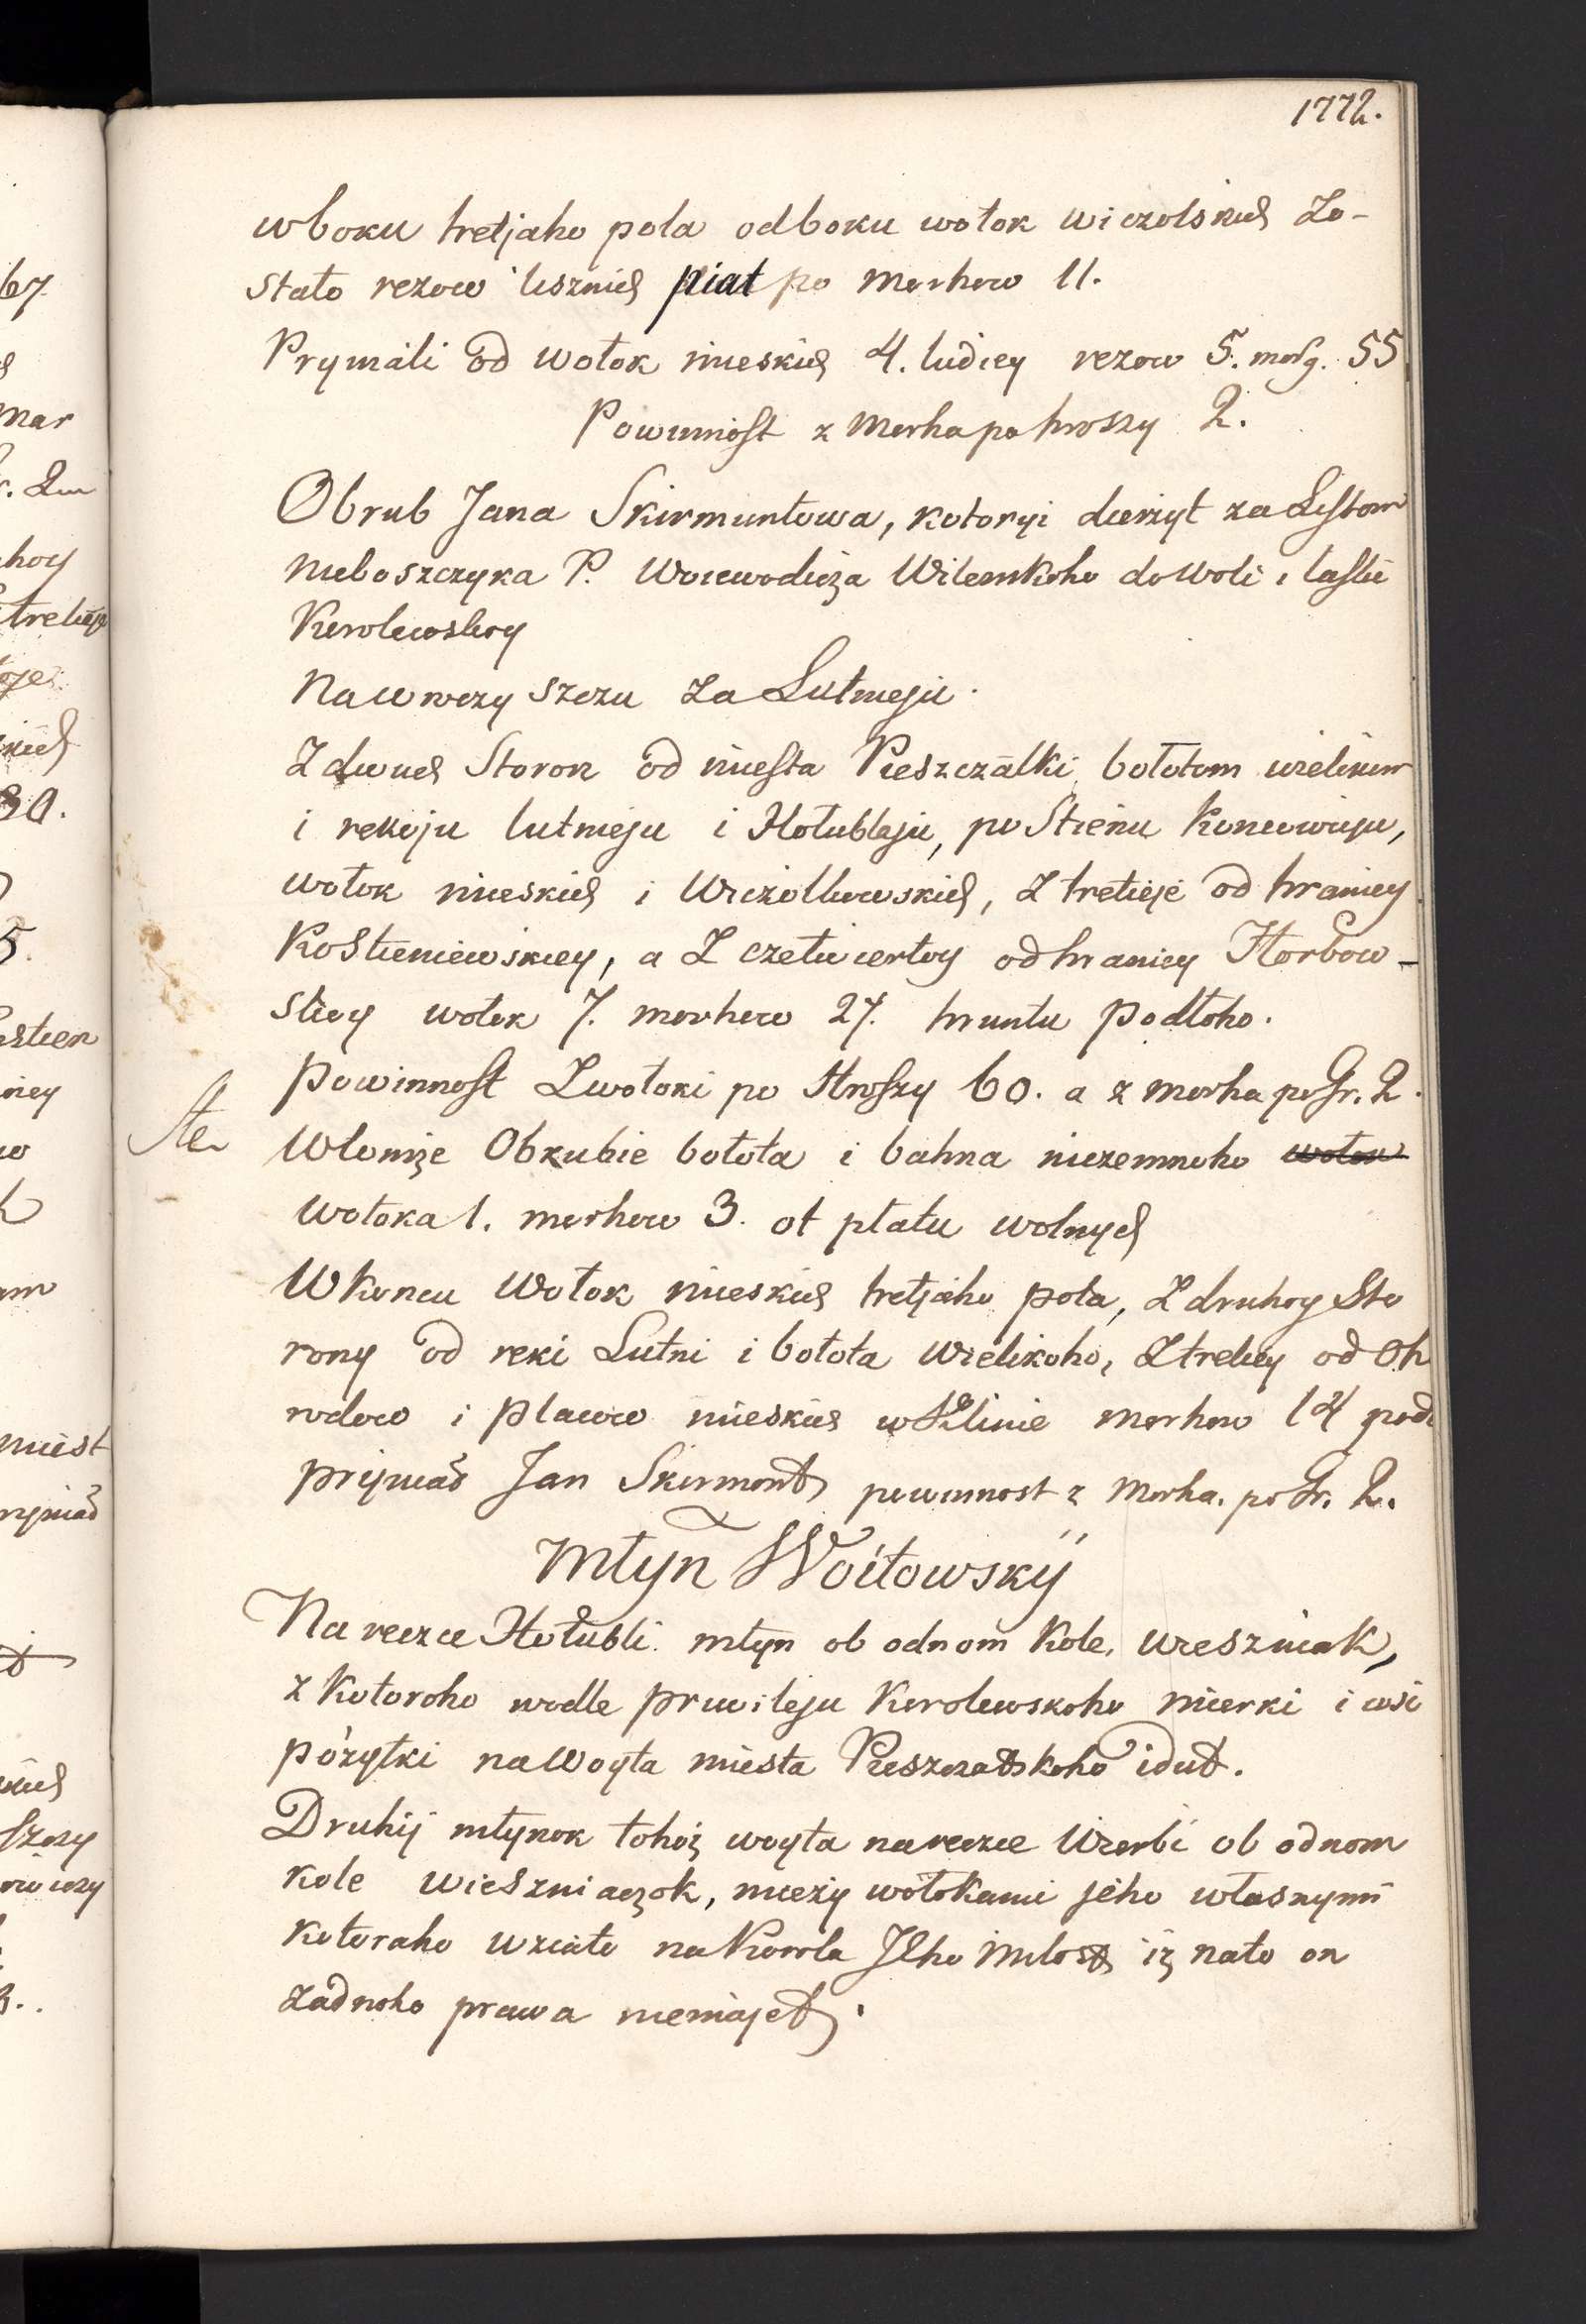 1772.
w boku tretjaho pola od boku wołok wiczolskich Zo-
stało rezow liszních piat po morhow 11.
Prymáli od wołok mieskich 4. ludiey rezow 5. morg. 55
Powinnost z morha po hroszy 2.
Obrub Jana Skirmuntowa, kotoryi dierżyt za Listom
Nieboszczyka P. Woiewodiża Wilemkoho do woli i laski
Korolewskoy
Na uroczyszczu za Lutneju.
Z dwuch Storon od miesta Pieszczálki, bołotom wielikim
i rekoju lutnieju i Hołublaju, po Stienu Koncowuju,
wołok mieskich i Wiczółkowskich, Z tretieje od hranicy
Kostieniewskiey, a Z czetwiertoy od hranicy Horbow-
skoy wołok 7. morhow 27. hruntu podłoho.
powinnost Z wołoki po Hroszy 60. a z morha po Gr. 2.
W tomże Obrubie bołota i bahna niezemnoho wołow
wołoka 1. morhow 3. ot płatu wolnych
W koncu Wołok mieskich tretjáho pola, Z druhoy Sto
rony od reki Lutni i bołota Wielikoho, Z tretiey od Oh
rodow i placow mieskich w Klinie morhow 14 podł
pryjmáł Jan Skirmont powinnost z morha. po Gr. 2.
Młyn Woitowskÿ
Na reczce Hołubli młyn ob odnom Kole, wieszniak,
z Kotoroho wodle prywileju Korolewskoho mierki i wsi
póżytki na Woyta miesta Pieszczatskoho idut.
Druhij młynok tohoż woyta na reczce Wierbi ob odnom
kole wieszniaczok, mieży wołokami jeho własnymi
kotoraho wziato na Korola JEho Miłost iż na to on
żadnoho prawa niemajet.